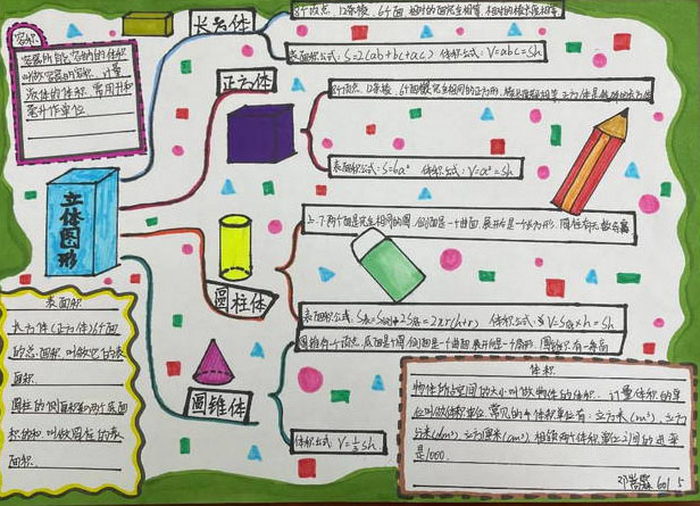 长方体
8个顶点、12条棱、6个面、相对的面完全相等、相对的棱长度相等
表面积公式：S=2(ab+bc+ac) 体积公式：V=abc=Sh
容积
容器所能容纳的体积
叫做容器的容积．计量
液体的体积．常用升和
毫升作单位．
正方体
8个顶点、12条棱、6个面完全相同的正方形、正方体是特殊的长方体
表面积公式：S=6a² 体积公式：V=a³=Sh
立体图形
上、下两个面是完全相同的圆、侧面是一个曲面、展开后是一个长方形．圆柱有无数条高
圆柱体
表面积公式：S表=S侧+2S底=2πr(h+r) 体积公式：V=S底×h=Sh
圆锥有一个顶点、底面是个圆、侧面是一个曲面、展开后是一个扇形．圆锥只有一条高
圆锥体
体积公式 V=⅓Sh
表面积
长方体(正方体)6个面
的总面积．叫做它的表
面积．
圆柱的侧面积和两个底面
积的和．叫做圆柱的表
面积．
体积
物体所占空间的大小叫做物体的体积．计量体积的单
位叫做体积单位．常见的体积单位有：立方米(m³)、立方
分米(dm³)、立方厘米(cm³)．相邻两个体积单位之间的进率
是1000．
601 5